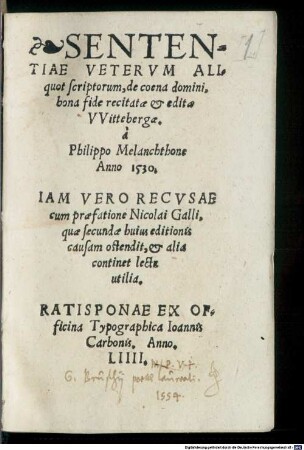 ❧SENTEN-
TIAE VETERVM ALI
quot scriptorum, de coena domini,
bona fide recitatæ & editæ
VVittebergæ.
à
Philippo Melanchthone
Anno 1530.
IAM VERO RECVSAE
cum præfatione Nicolai Galli,
quæ secundæ huius editionis
causam ostendit, & alia
continet lectu
utilia.
RATISPONAE EX OF-
ficina Typographica Ioannis
Carbonis. Anno.
LIIII.
G. Bruschij poete laureati.
1554.